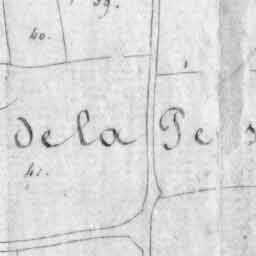 39.
40.
de la Pe s
41.